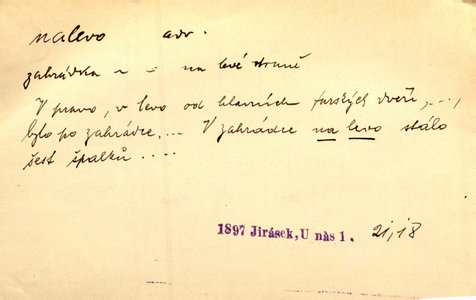 nalevo adv.
zahrádka na levé straně
V pravo, v levo od hlavních farských dveří, ...,
bylo po zahrádce, ... V zahrádce na levo stálo
šest špalků ....
1897 Jirásek, U nás 1. 21, 18